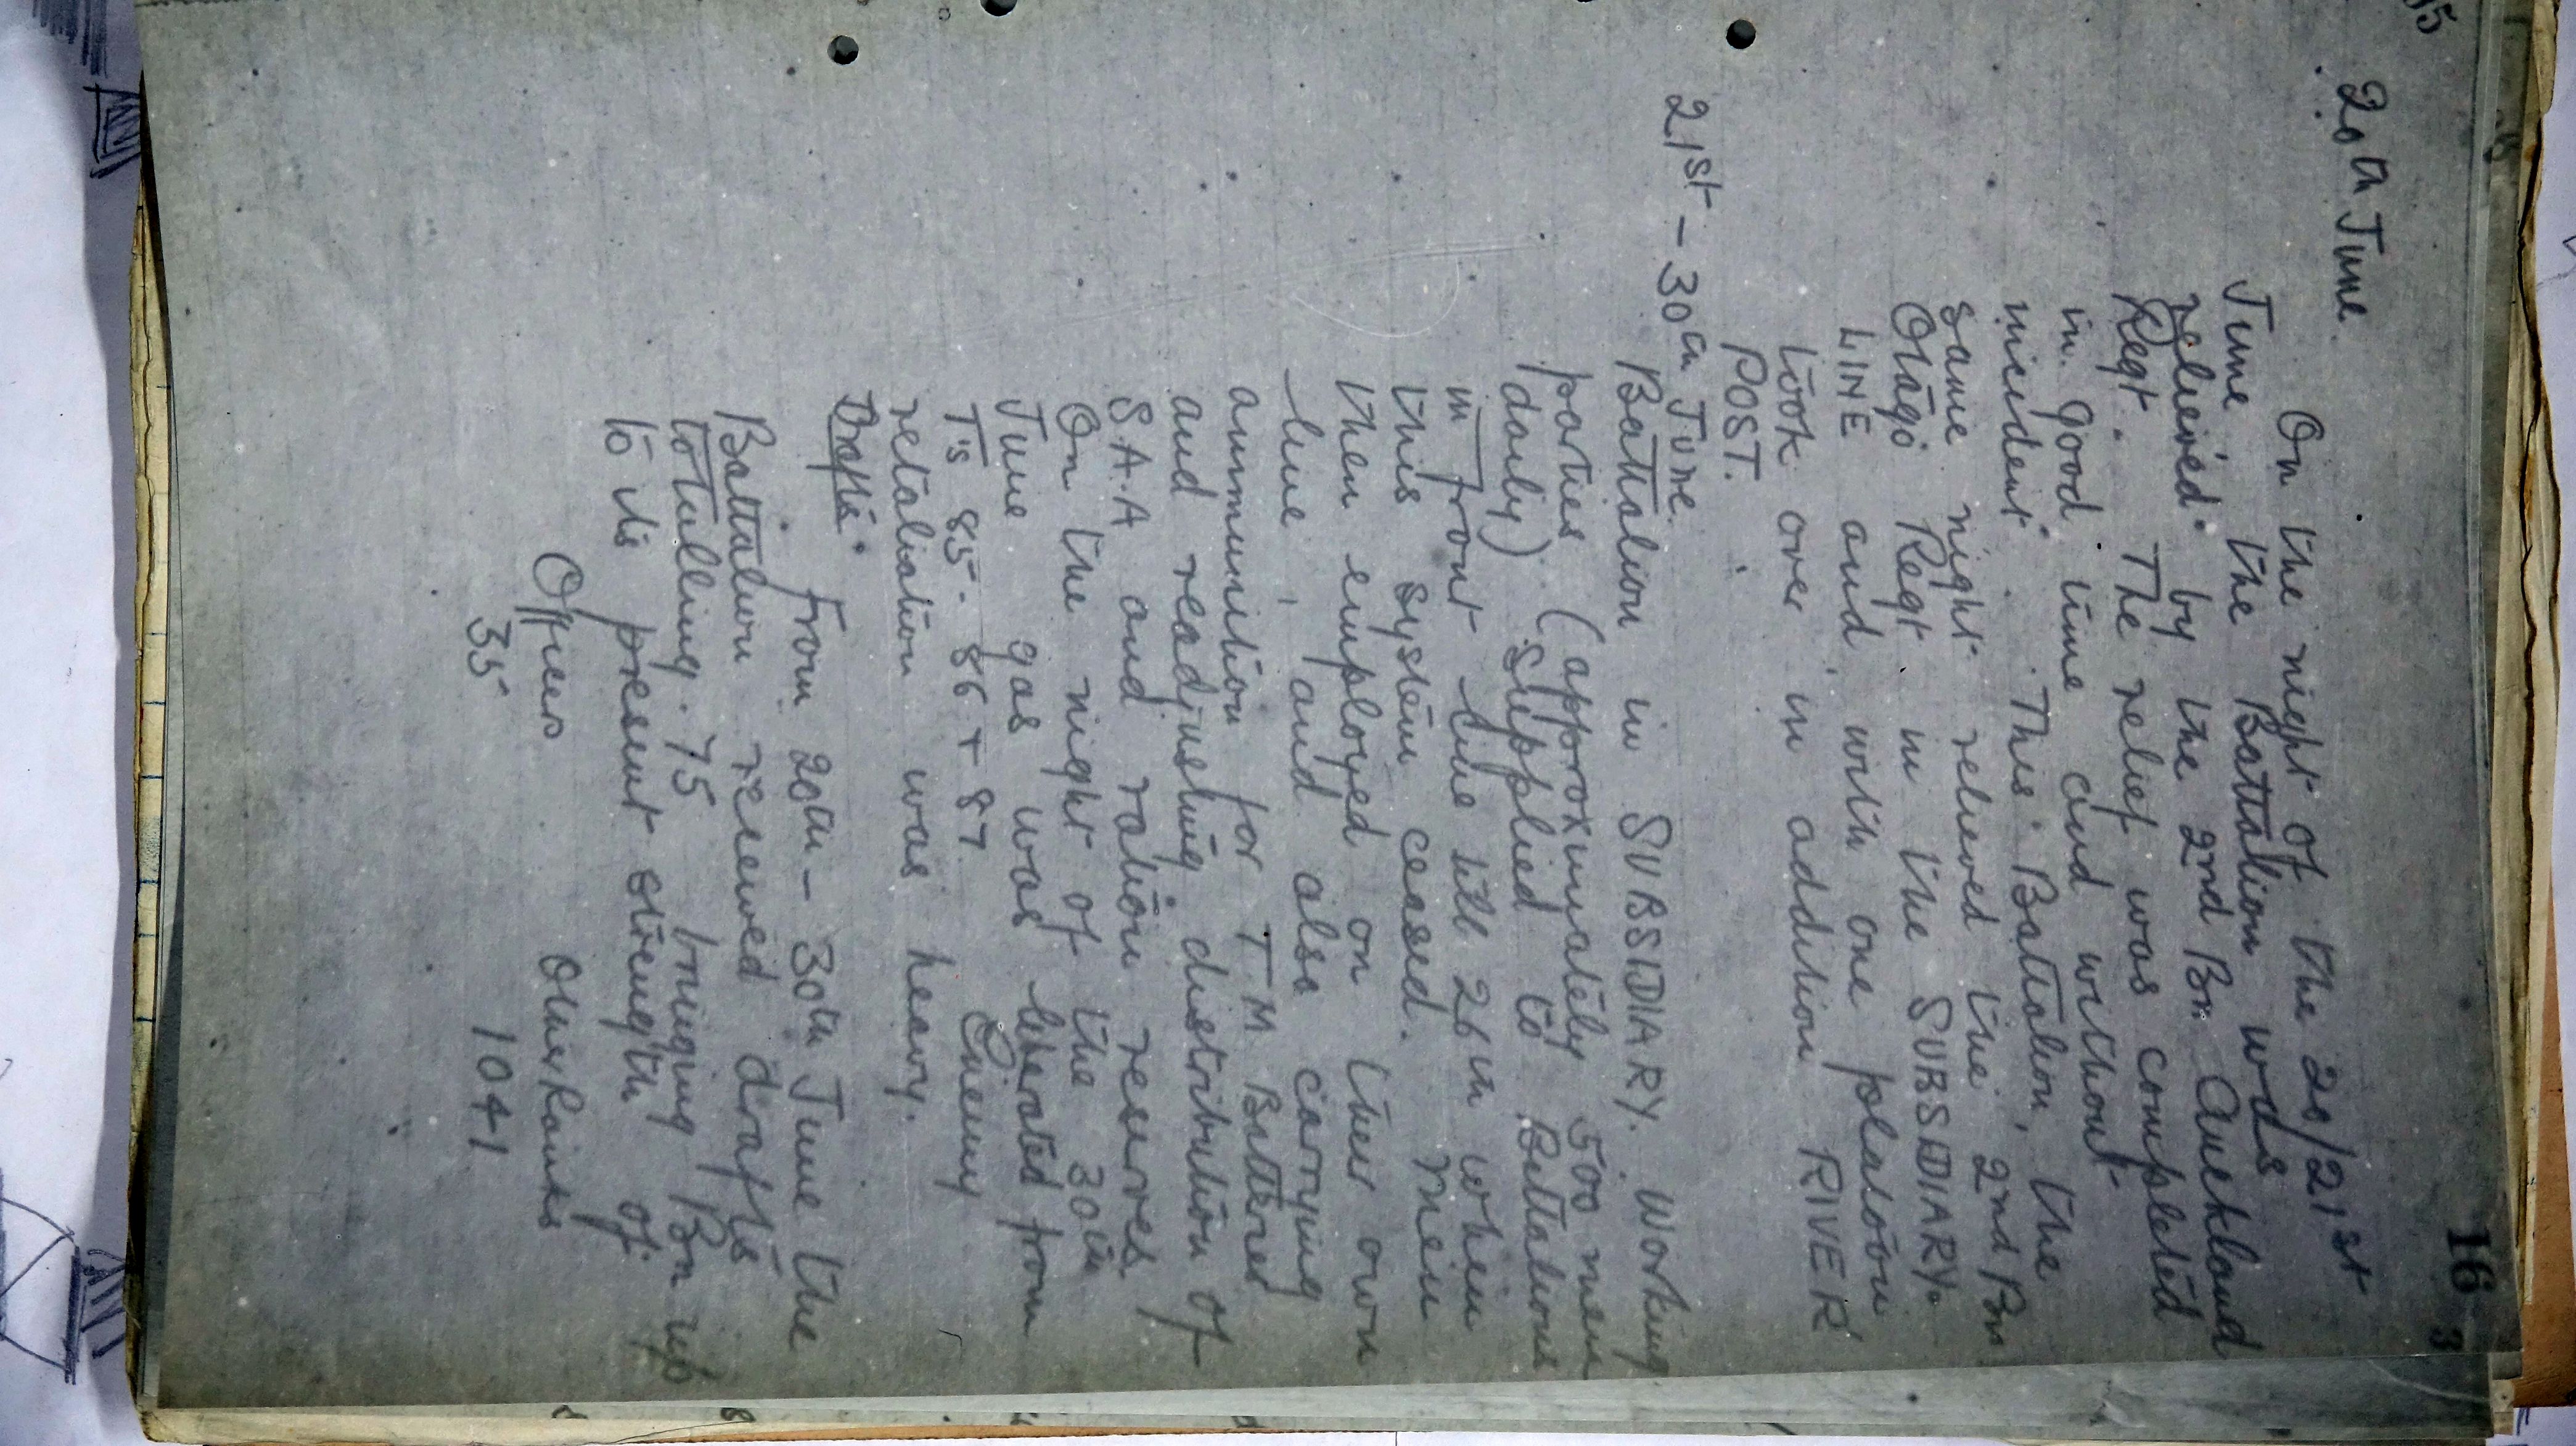 16
3
20th June.
On the night of the 20/21st
June the Battalion was
relieved by the 2nd Bn Auckland
Regt. The relief was completed
in good time and without
incident. This Battalion, the
same night relieved the 2nd Bn
Otago Regt in the SUBSIDIARY
LINE and, with one platoon
took over in addition RIVER
POST.
21st - 30th June.
Battalion in SUBSIDIARY. Working
parties (approximately 500 men
daily) supplied to Battalions
in front line till 26th when
this system ceased. Men
then employed on their own
line, and also carrying
ammunition for T M Batteries
and readjusting distribution of
S.A.A and ration reserves.
On the night of the 30th
June gas was liberated from
T's 85. 86 + 87. Enemy
retaliation was heavy.
Drafts.
From 20th - 30th June the
Battalion received drafts
totalling 75 bringing Bn up
to its present strength of
Officers Other Ranks
35 1041